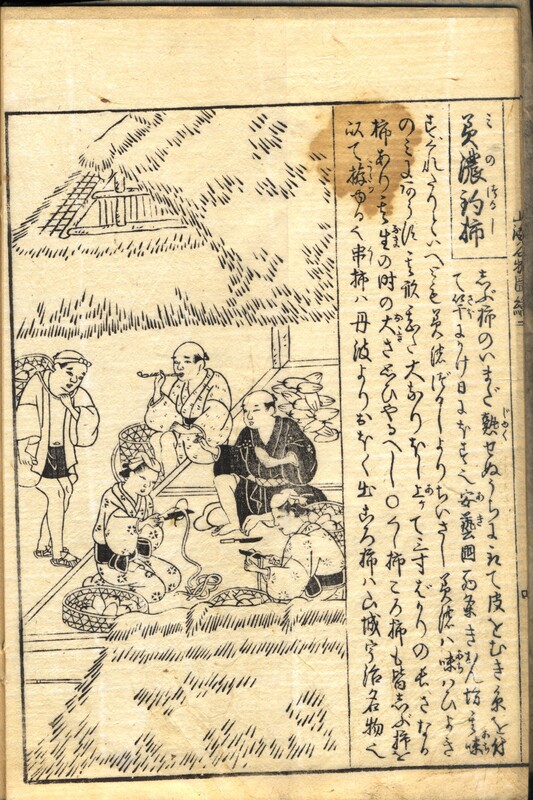 美濃釣柿
しぶ柿のいまだ熟せぬうちに取て皮をむき糸を付
て竿にかけ日にほす也安藝國西条きおん坊其味
すぐれたりといへども美濃つるしよりちいさし美濃ハ味ハひよき
のミにあらず其形甚だ大なりほし上りて三寸ばかりの長さなる
柿あり其生の時の大さ思ひやるべし〇くし柿ころ柿も皆しぶ柿を
以て拵ゆる也串柿ハ丹波よりおほく出ころ柿ハ山城宇治名物也
山海名物圖繪二